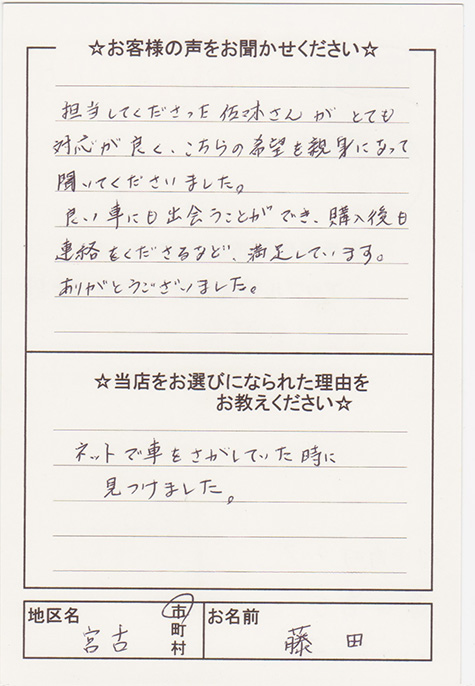 ☆お客様の声をお聞かせください☆
担当してくださった佐々木さんがとても
対応が良く、こちらの希望を親身になって
聞いてくださいました。
良い車にも出会うことができ、購入後も
連絡をくださるなど、満足しています。
ありがとうございました。
☆当店をお選びになられた理由を
お教えください☆
ネットで車をさがしていた時に
見つけました。
地区名 宮古 市町村 お名前 藤田